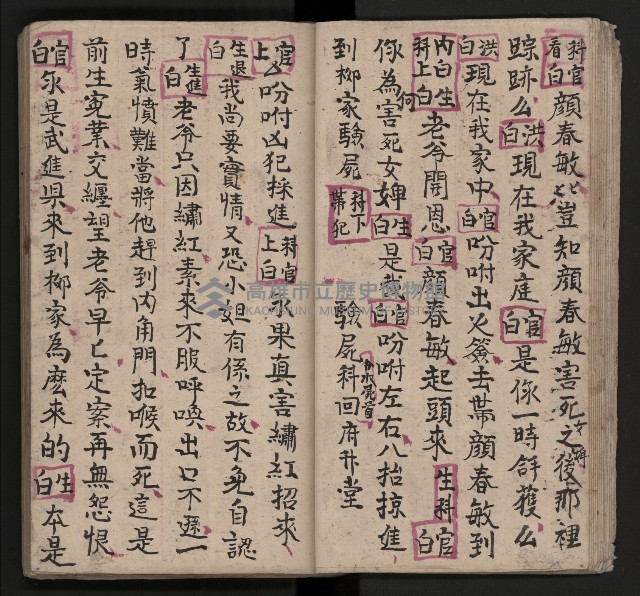 科官看白顏春敏比豈知顏春敏害死女婢之後那裡
踪跡么洪白現在我家庭官白是你一時解獲么
洪白現在我家中官白吩咐出火簽去帶顏春敏到
內白生科上白老爷開恩官白顏春敏起頭來生科官白
你為何害死女婢生白是我官白吩咐左右八抬掠進
到柳家驗屍科下帶犯驗屍科回府升堂
官上白吩咐凶犯採進科官上白你果真害繡紅招來
生退白我尚要實情又恐小姐有係之故不免自認
了生進白老爷只因繡紅素來不服呼喚出口不遜一
時氣憤難當將他趕到內角門扣喉而死這是
前生冤業交纏望老爷早亡定案再無怨恨
官白你是武進县來到柳家為麼來的生白本是
高雄市立歷史博物館
KAOHSIUNG MUSEUM OF HISTORY